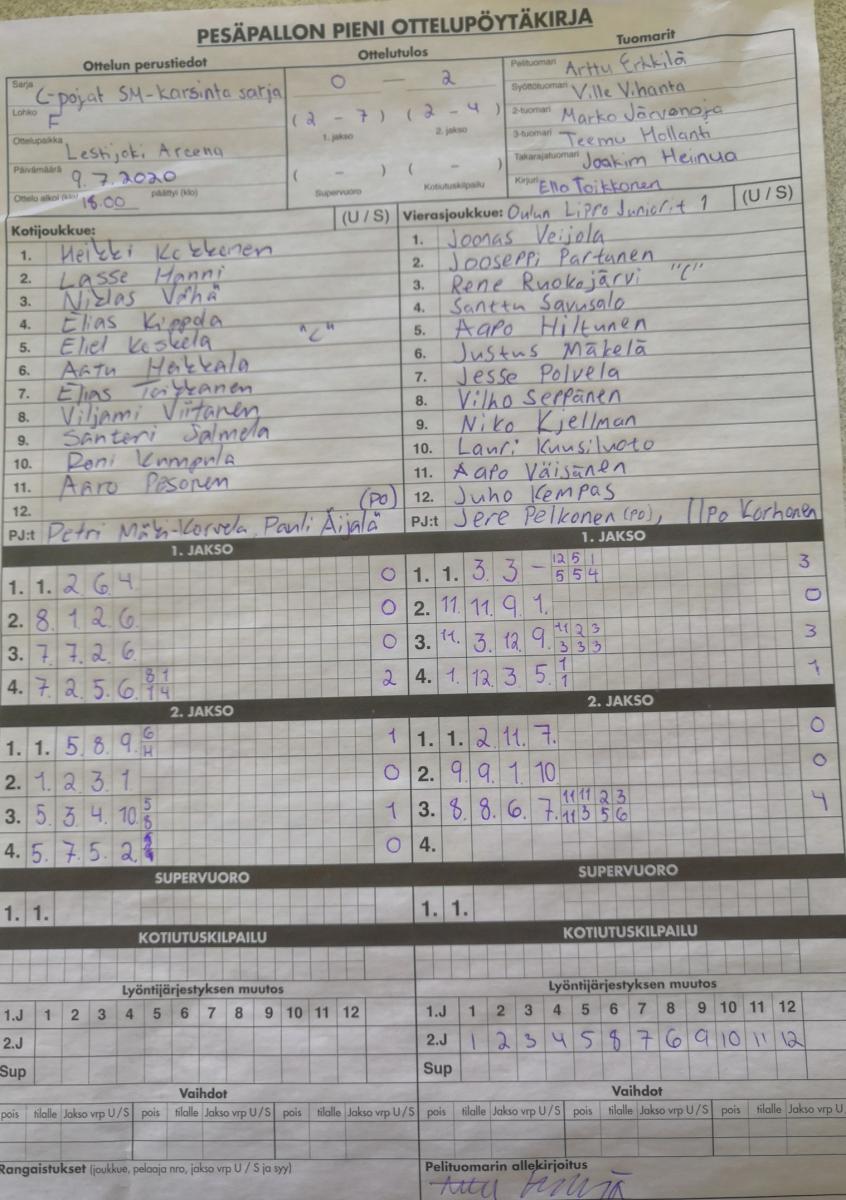 PESÄPALLON PIENI OTTELUPÖYTÄKIRJA
Ottelun perustiedot
Sarja C-pojat SM-karsinta sarja
Lohko F
Ottelupaikka Lestijoki Areena
Päivämäärä 9.7.2020
Ottelu alkoi (klo) 18.00 päättyi (klo)
Ottelutulos
0 — 2
(2 - 7) (2 - 4)
1. jakso 2. jakso
( - ) ( - )
Supervuoro Kotiutuskilpailu
Tuomarit
Pelituomari Arttu Erkkilä
Syöttötuomari Ville Vihanta
2-tuomari Marko Järvenoja
3-tuomari Teemu Hollanti
Takarajatuomari Joakim Heinua
Kirjuri Ello Toikkonen
Kotijoukkue: (U / S)
1. Heikki Kokkonen
2. Lasse Hanni
3. Niklas Vähä
4. Elias Kippola
5. Eliel Koskela "C"
6. Aatu Heikkala
7. Elias Toikkanen
8. Viljami Viitanen
9. Santeri Salmela
10. Roni Kumpula
11. Aaro Pesonen
12.
PJ:t Petri Mäki-Korvela, Pauli Äijälä (PO)
Vierasjoukkue: Oulun Lipro Juniorit 1 (U / S)
1. Joonas Veijola
2. Jooseppi Partanen
3. Rene Ruokojärvi "C"
4. Santtu Savusalo
5. Aapo Hiltunen
6. Justus Mäkelä
7. Jesse Polvela
8. Vilho Seppänen
9. Niko Kjellman
10. Lauri Kuusiluoto
11. Aapo Väisänen
12. Juho Kempas
PJ:t Jere Pelkonen (PO), Ilpo Korhonen
1. JAKSO
1. 1. 2 6 4 0
2. 8. 1 2 6. 0
3. 7 7. 2 6. 0
4. 7. 2. 5. 6. 8 1 2
1 4
1. JAKSO
1. 1. 3. 3 - 12 5 1 3
5 5 4
2. 11. 11. 9 1. 0
3. 11. 3. 12. 9. 11 2 3 3
3 3 3
4. 1. 12. 3 5. 1 1
1
2. JAKSO
1. 1. 5. 8. 9. 6 1
H
2. 1. 2 3. 1 0
3. 5. 3. 4. 10. 5 1
8
4. 5. 7. 5. 2. 0
2. JAKSO
1. 1. 2. 11. 7. 0
2. 9. 9. 1. 10. 0
3. 8. 8. 6. 7. 11 11 2 3 4
11 3 5 6
4.
SUPERVUORO
1. 1.
SUPERVUORO
1. 1.
KOTIUTUSKILPAILU
KOTIUTUSKILPAILU
Lyöntijärjestyksen muutos
1.J 1 2 3 4 5 6 7 8 9 10 11 12
2.J
Sup
Lyöntijärjestyksen muutos
1.J 1 2 3 4 5 6 7 8 9 10 11 12
2.J 1 2 3 4 5 8 7 6 9 10 11 12
Sup
Vaihdot
pois tilalle Jakso vrp U / S pois tilalle Jakso vrp U / S pois tilalle Jakso vrp U / S
Vaihdot
pois tilalle Jakso vrp U / S pois tilalle Jakso vrp U / S pois tilalle Jakso vrp U
Rangaistukset (joukkue, pelaaja nro, jakso vrp U / S ja syy)
Pelituomarin allekirjoitus